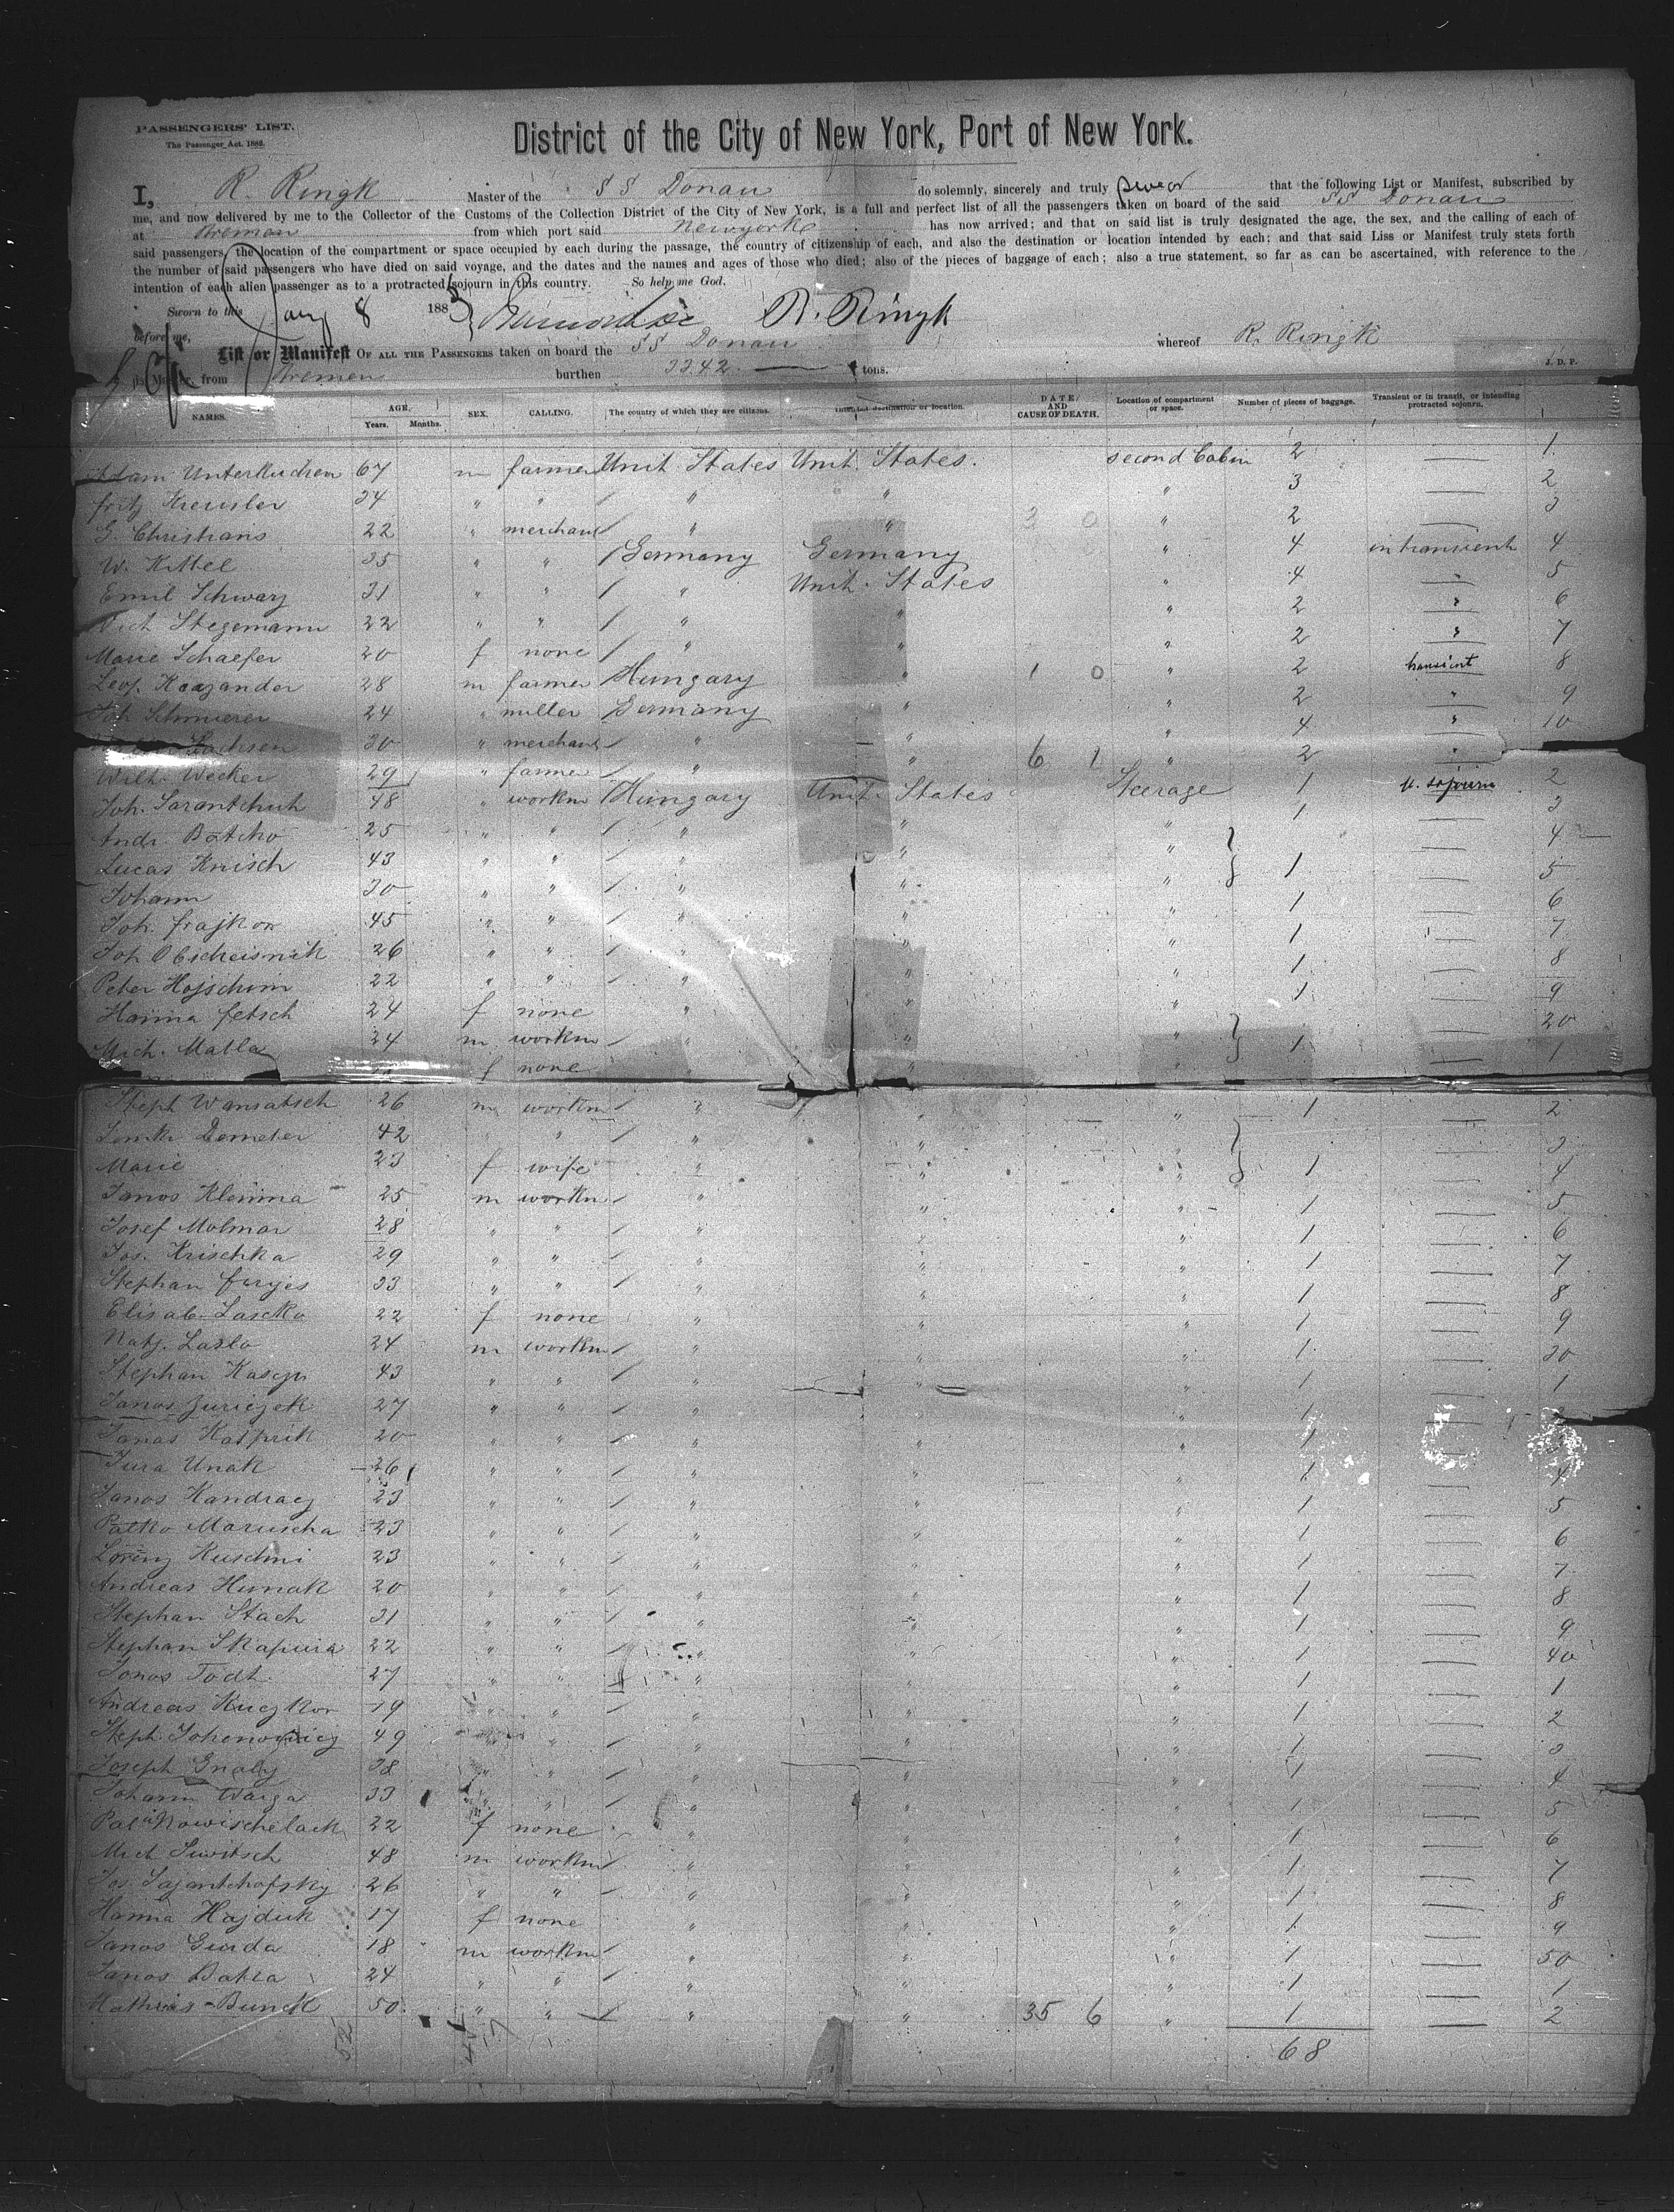 PASSENGERS' LIST.
The Passenger Act, 1882.
District of the City of New York, Port of New York.
I, R. Ringk Master of the SS Donau do solemnly, sincerely and truly swear that the following List or Manifest, subscribed by
me, and now delivered by me to the Collector of the Customs of the Collection District of the City of New York, is a full and perfect list of all the passengers taken on board of the said SS Donau
at Bremen from which port said Newyork has now arrived; and that on said list is truly designated the age, the sex, and the calling of each of
said passengers, the location of the compartment or space occupied by each during the passage, the country of citizenship of each, and also the destination or location intended by each; and that said Liss or Manifest truly stets forth
the number of said passengers who have died on said voyage, and the dates and the names and ages of those who died; also of the pieces of baggage of each; also a true statement, so far as can be ascertained, with reference to the
intention of each alien passenger as to a protracted sojourn in this country. So help me God.
Sworn to this 8 188 R. Ringk
before me,
List or Manifest OF ALL THE PASSENGERS taken on board the SS Donau whereof R. Ringk
is Master, from Bremen burthen 3342 tons. J. D. P.
NAMES. AGE. Years. Months. SEX. CALLING. The country of which they are citizens. Intended destination or location. DATE AND CAUSE OF DEATH. Location of compartment or space. Number of pieces of baggage. Transient or in transit, or intending protracted sojourn.
67 m farmer Unit. States Unit. States. second Cabin 2 — 1
Fritz Kreusler 34 " " " " " 3 — 2
G. Christians 22 " merchant " " 3 0 " 2 — 3
W. Kittel 35 " " Germany Germany " 4 in transient 4
Emil Schwarz 31 " " " Unit. States " 4 " 5
Stegemann 22 " " " " " 2 " 6
Marie Schaefer 20 f none " " " 2 " 7
28 m farmer Hungary " 1 0 " 2 transient 8
Joh. Schmierer 24 " miller Germany " " 2 " 9
30 " merchant " " " 4 " 10
Wilh. Wecker 29 " farmer " " 6 1 " 2 "
Joh. Sarantchuh 48 " workm Hungary Unit. States Steerage 1 sojourn 2
Andr. Batcho 25 " " " " " 1 — 3
Lucas Knisch 43 " " " " " — 4
Johann 30 " " " " " 1 — 5
Joh. Frajkor 45 " " " " " 1 — 6
Joh. 26 " " " " " 1 — 7
Peter Hojschim 22 " " " " " 1 — 8
Hanna Fetsch 24 f none " " " 1 — 9
Mich. Matla 34 m workm " " " — 20
f none " " 1 — 1
Steph Wansatsch 26 m workm " " " 1 — 2
Demeter 42 " " " " " — 3
Marie 23 f wife " " " 1 — 4
Janos Klemma 25 m workm " " " 1 — 5
Josef Molmar 28 " " " " " 1 — 6
Jos. Krischka 29 " " " " " 1 — 7
Stephan 33 " " " " " 1 — 8
Elisab. Lascko 22 f none " " " 1 — 9
Laslo 24 m workm " " " 1 — 30
Stephan 43 " " " " " 1 — 1
Janos Juriczek 27 " " " " " 1 —
Janas Kasprik 20 " " " " " 1
Jura Unak 26 " " " " " 1 — 4
Janos Kandracz 23 " " " " " 1 — 5
Palko Maruscha 23 " " " " " 1 — 6
Lorenz Kuschni 23 " " " " " 1 — 7
Andreas Hunak 20 " " " " " 1 — 8
Stephan Stach 31 " " " " " 1 — 9
Stephan Skapura 22 " " " " " 1 — 40
Janos Todt 27 " " " " " 1 — 1
Andreas Kuczkor 19 " " " " " 1 — 2
Steph 49 " " " " 1 — 3
Joseph 38 " " " " " 1 — 4
Johann Warga 33 " " " " " 1 — 5
32 f none " " " 1 — 6
Mich 48 m workm " " " 1 — 7
Jos. 26 " " " " " 1 — 8
Hanna Hajduk 17 f none " " " 1 — 9
Janos Gurda 18 m workm " " " 1 — 50
Janos 24 " " " " " 1 — 1
Mathias Bunck 50 " " " " 35 6 " 1 — 2
52
68